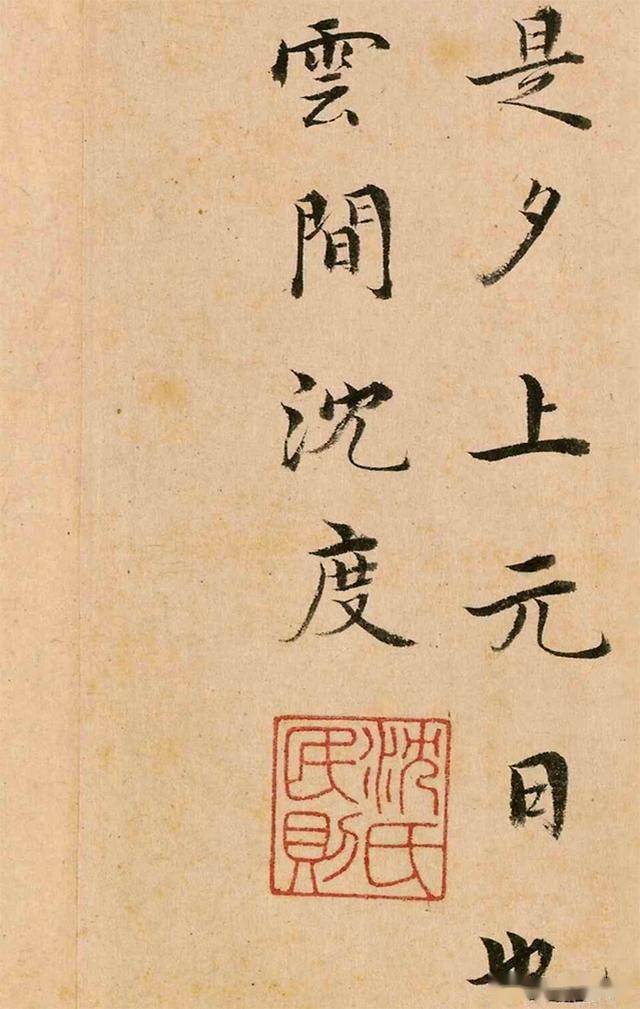 是夕上元日也
雲間沈度
沈氏
民則